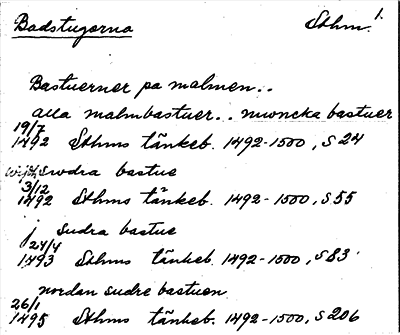 Badstugorna Sthm. 1.
Bastuerner pa malmen..
alla malmbastuer.. muncka bastuer
19/7
1492 Sthms tänkeb. 1492-1500, S 24
wijdh swdra bastue
3/12
1492 Sthms tänkeb. 1492-1500, S 55
j sudra bastue
24/4
1493 Sthms tänkeb. 1492-1500, S 83
nordan sudre bastuen
26/1
1495 Sthms tänkeb. 1492-1500, S 206